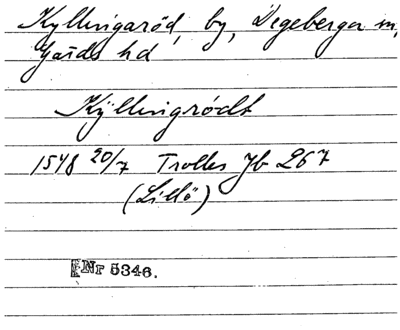 Kyllingaröd, by, Degeberga sn,
Gärds hd
Kÿllingrödt
1548 20/7 Trolles Jb 267
(Lillö)
Nr 5346.